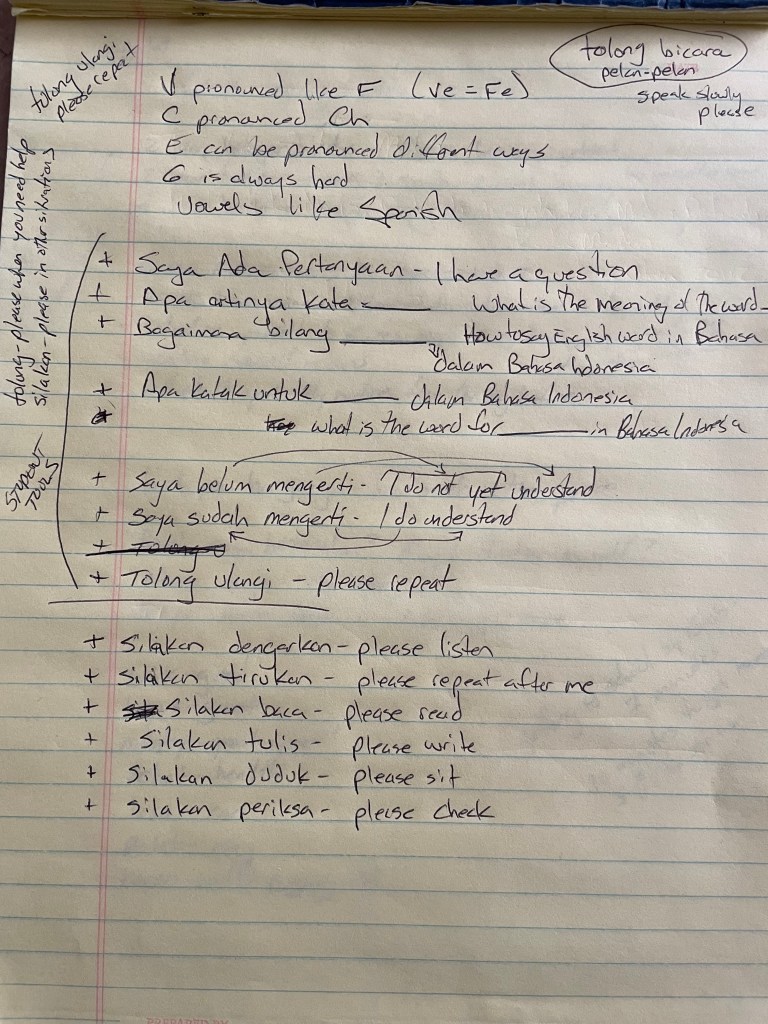 tolong ulangi
please repeat
tolong bicara
pelan-pelan
speak slowly
please
V pronounced like F (Ve = Fe)
C pronounced Ch
E can be pronounced different ways
G is always hard
Vowels like Spanish
tolong - please when you need help
silakan - please in other situations
STUDENT TOOLS
+ Saya Ada Pertanyaan - I have a question
+ Apa artinya kata = ____ What is the meaning of the word
+ Bagaimana bilang ____ How to say English word in Bahasa
dalam Bahasa Indonesia
+ Apa katak untuk ____ dalam Bahasa Indonesia
what is the word for ____ in Bahasa Indonesia
+ Saya belum mengerti - I do not yet understand
+ Saya sudah mengerti - I do understand
+ Tolong
+ Tolong ulangi - please repeat
+ Silakan dengarkan - please listen
+ Silakan tirukan - please repeat after me
+ Silakan baca - please read
+ Silakan tulis - please write
+ Silakan duduk - please sit
+ Silakan periksa - please check
PREPARED BY